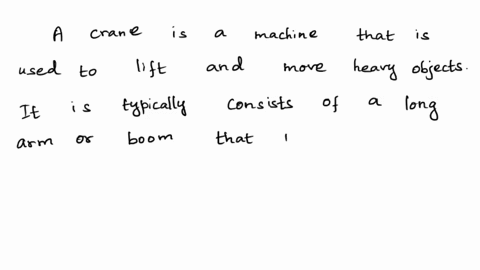 A crane is a machine that is
used to lift and move heavy objects.
It is typically consists of a long
arm or boom that